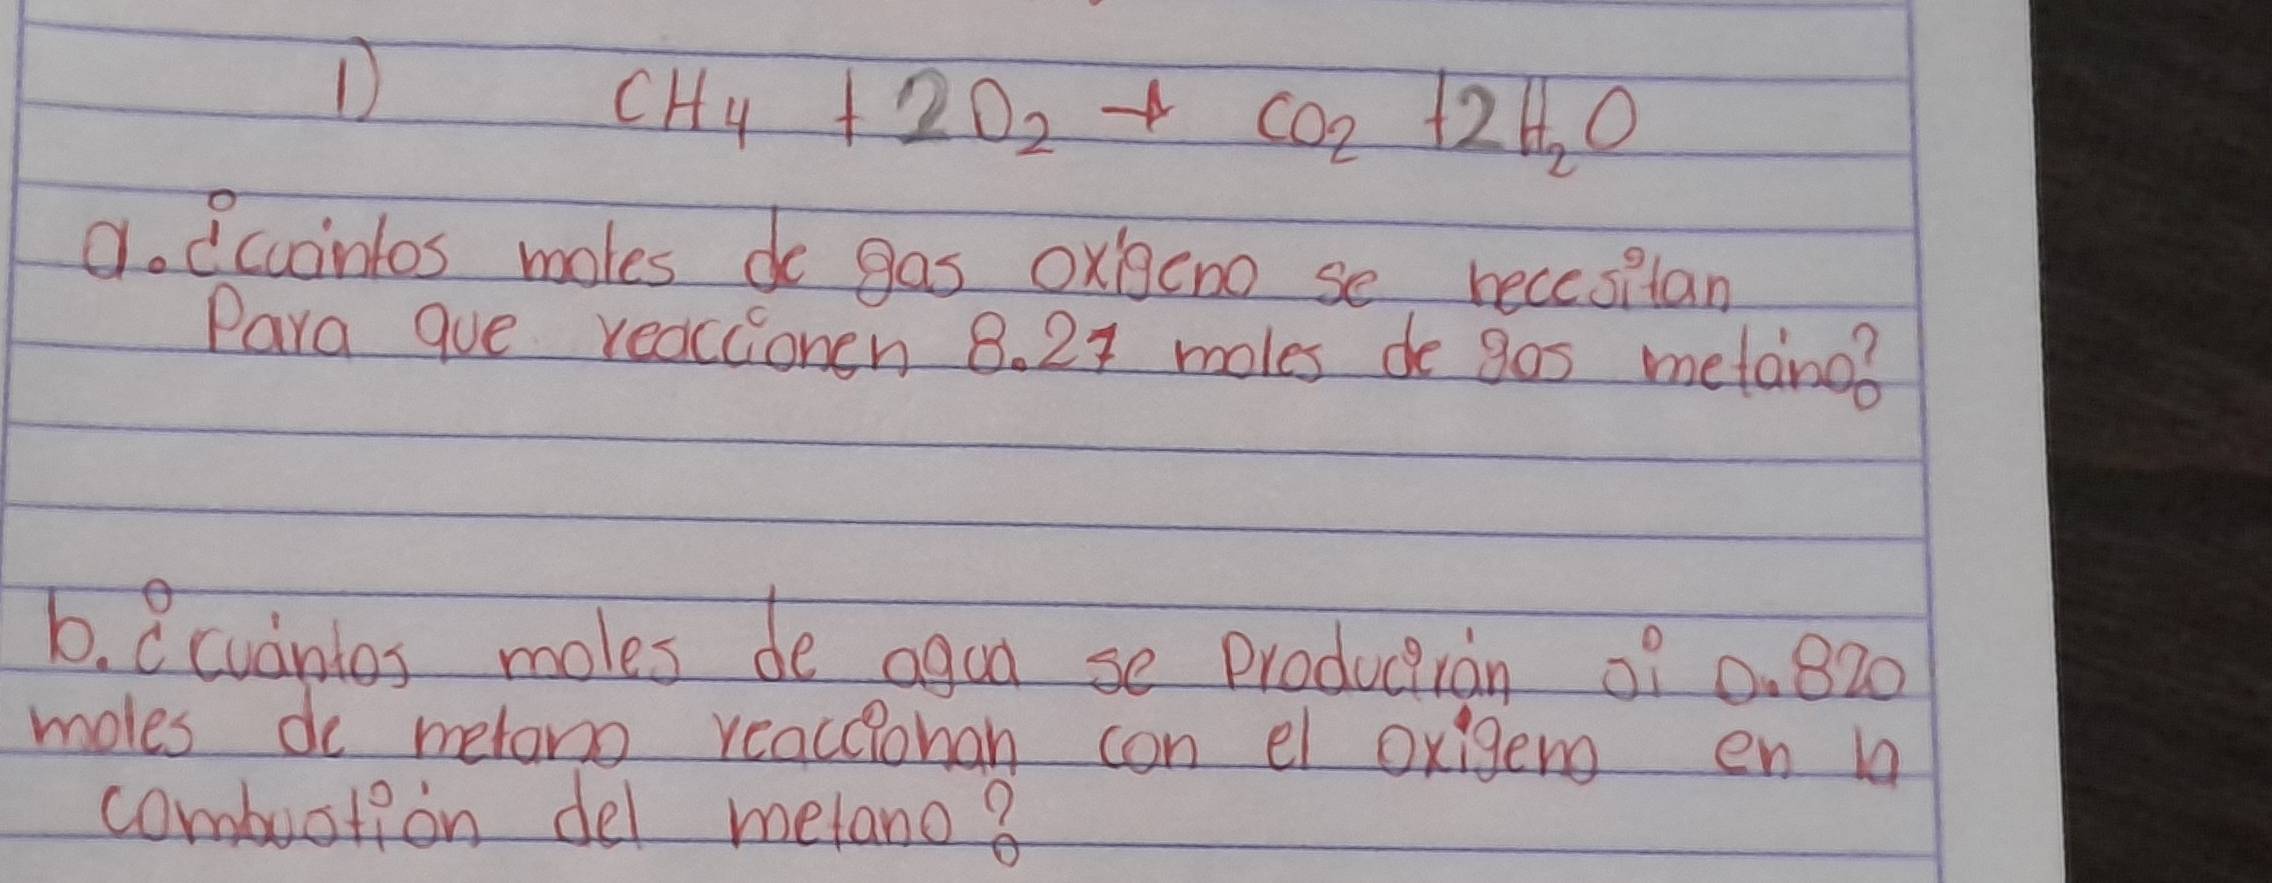 1) CH4 + 2O2 → CO2 + 2H2O
a. ¿cuántos moles de gas oxígeno se necesitan
Para que reaccionen 8.27 moles de gas metáno?
b. ¿cuántos moles de agua se Producirán si 0.820
moles de metano reaccionan con el oxígeno en la
combustión del metano?